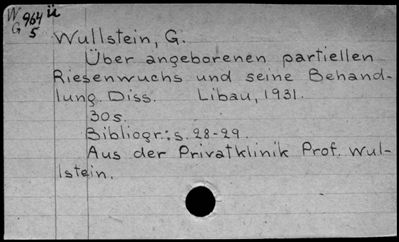 W 964 ü
G 5
Wullstein, G.
Über angeborenen partiellen
Riesenwuchs und seine Behand-
lung. Diss. Libau, 1931.
30s.
Bibliogr.: s. 28-29.
Aus der Privatklinik Prof. Wul-
lstein.